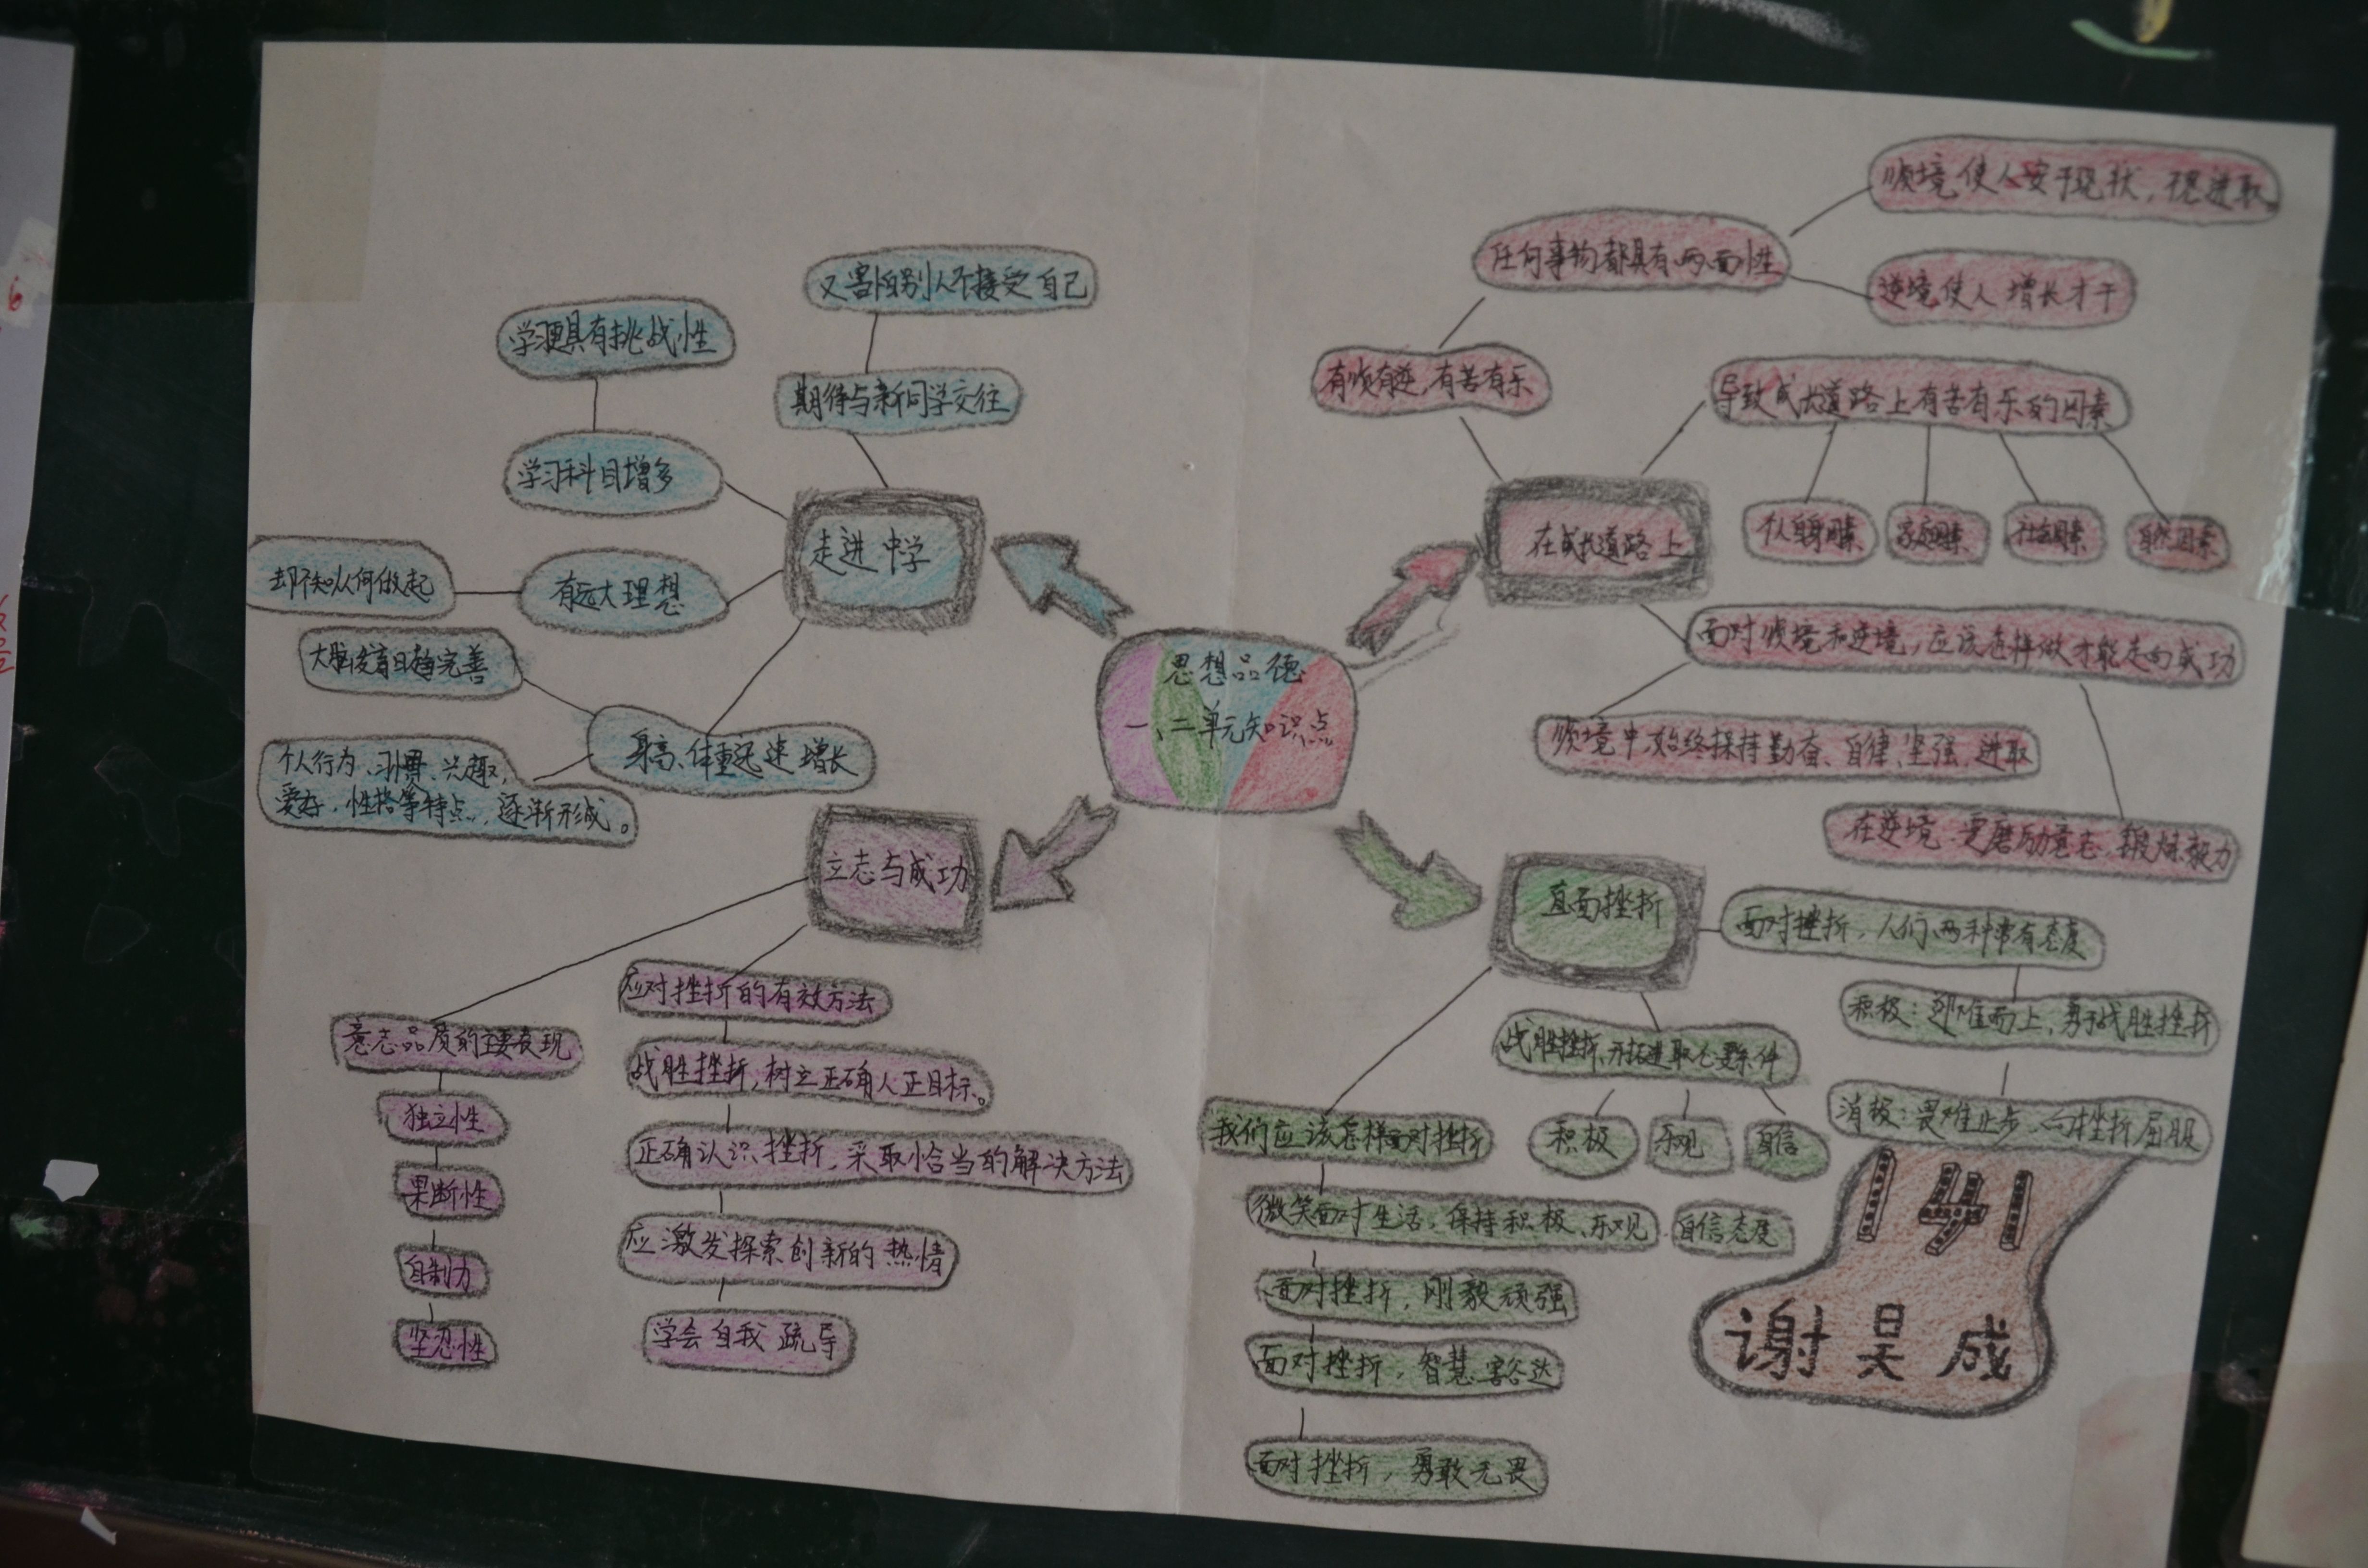 思想品德
一、二单元知识点
走进中学
又害怕别人不接受自己
期待与新同学交往
学习更具有挑战性
学习科目增多
有远大理想
却不知从何做起
身高、体重迅速增长
大脑发育日趋完善
个人行为、习惯、兴趣,
爱好,性格等特点,逐渐形成。
在成长道路上
有顺有逆,有苦有乐
任何事物都具有两面性
顺境使人安于现状,不思进取
逆境使人增长才干
导致成长道路上有苦有乐的因素
个人自身因素
家庭因素
社会因素
自然因素
面对顺境和逆境,应该怎样做才能走向成功
顺境中,始终保持勤奋、自律、坚强、进取
在逆境、更磨励意志,锻炼毅力
立志与成功
意志品质的主要表现
独立性
果断性
自制力
坚忍性
应对挫折的有效方法
战胜挫折,树立正确人正目标。
正确认识挫折,采取恰当的解决方法
应激发探索创新的热情
学会自我疏导
直面挫折
面对挫折,人们两种常有态度
积极:迎难而上,勇于战胜挫折
消极:畏难止步,向挫折屈服
战胜挫折、开拓进取必要条件
积极
乐观
自信
我们应该怎样面对挫折
微笑面对生活,保持积极、乐观
自信态度
面对挫折,刚毅顽强
面对挫折,智慧豁达
面对挫折,勇敢无畏
141
谢昊成
6